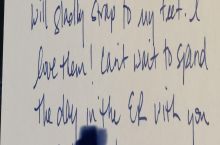 will gladly strap to my feet. I
love them! Can't wait to spend
the day in the ER with you